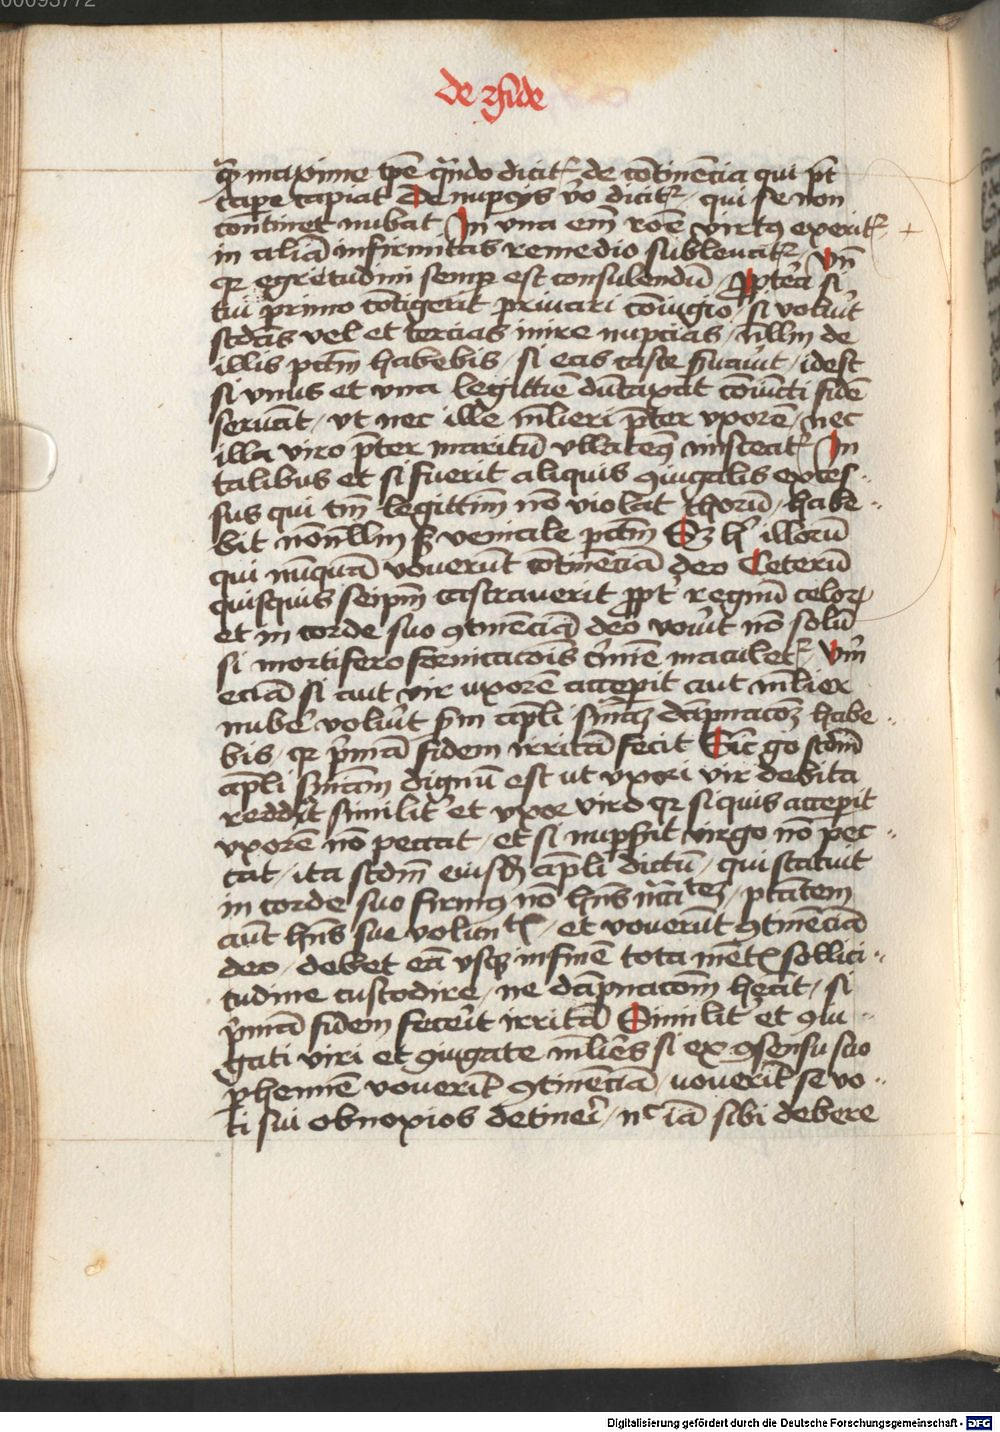 00093772
de xfide
qm maxime tpe qndo dicit de cōtinēcia qui pt
cape capiat De nupcijs vo dicit / qui se non
continet nubat In vna em roē virtq exerit
in aliā infirmitas remedio subleuat Vn
qr egretudini semp est consulendū / ppterea si
tui primo cōtigerit priuari cōiugio / si voluit
scdas vel et tercias inire nupcias / nllm de
illis pctm habebis / si eas caste suauit / idest
si vnus et vna legittie dūtaxat cōiūcti fidē
seruāt / vt nec ille mlieri pter vxorē / nec
illa viro pter maritū vllateq misceat In
talibus et si fuerit aliquis 9iugalis exces
sus qui tm legittim nō violat thorū / habe
bit nōnllm sz veniale pctm Sz h illorū
qui nūquā vouerūt cōtinēciā deo Ceterū
quisquis seipm castrauerit ppt regnū celor
et in corde suo 9tinēciā deo vouit nō solū
si mortifero fornicacois crimie maculet / Vm
eciā si aut vir uxorē acceperit aut mlier
nubē voluit scm apli sniaz dāpnacōz habe
bis / qr pmā fidem irritā fecit Sic go scdm
apli sniam dignū est ut vxori vir debita
reddit similit et vxor viro qr si quis acceperit
vxorē nō peccat / et si nupsit virgo nō pec
cat / ita scdm eiusd apli dictū / qui statuit
in corde suo firmq nō hns ncitez / ptatem
aut hns sue volunt / et vouerūt 9tinēciā
deo / debet eā vsq infinē tota mēt sollici
tudine custodire / ne dāpnacom heat / si
pmā fidem fecerit irritā Similit et 9iu
gati viri et 9iugate mlieres si ex 9sensu suo
phennē vouerit 9tinēciā / nouerit se vo
ti sui obnoxios detineri / nc iā sibi debere
Digitalisierung gefördert durch die Deutsche Forschungsgemeinschaft - DFG